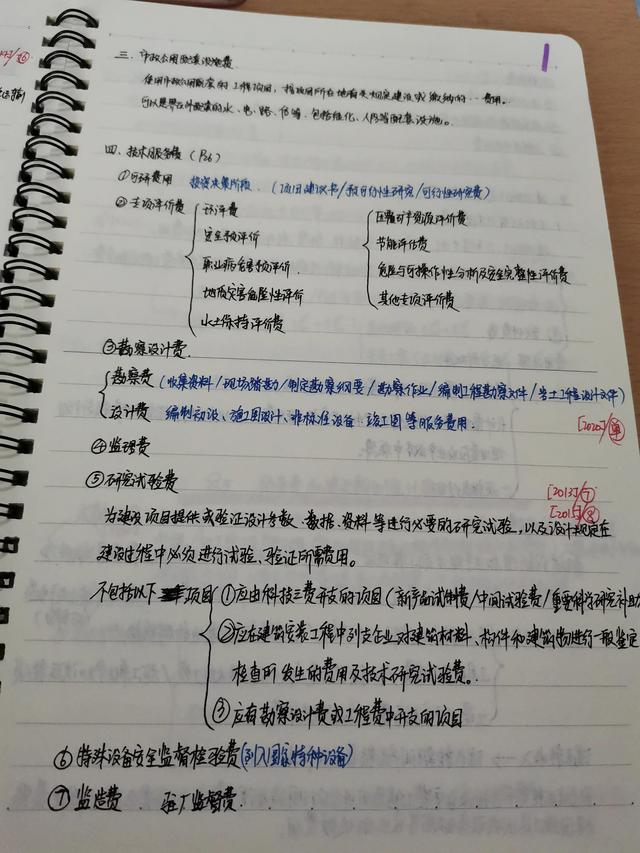 三、市政公用配套设施费
使用市政公用配套的工程项目，按项目所在地有关规定建设或缴纳的…费用。
可以是界区外配套的水、电、路、信等，包括绿化、人防等配套设施。
四、技术服务费（P36）
①可研费用 投资决策阶段．（项目建议书/预可行性研究/可行性研究费）
②专项评价费 环评费 压覆矿产资源评价费
安全预评价 节能评估费
职业病危害预评价． 危险与可操作性分析及安全完整性评价费
地质灾害危险性评价 其他专项评价费
水土保持评价费
③勘察设计费．
勘察费（收集资料/现场踏勘/制定勘察纲要/勘察作业/编制工程勘察文件/岩土工程设计文件）
设计费 编制初设、施工图设计、非标准设备、竣工图等服务费用．
[2020]/单
④监理费
⑤研究试验费
[2013]/⑦
[2015]/⑧
为建设项目提供或验证设计参数、数据、资料等进行必要的研究试验，以及设计规定在
建设过程中必须进行试验、验证所需费用。
不包括以下项目 ①应由科技三费开支的项目（新产品试制费/中间试验费/重要科学研究补助
②应在建筑安装工程中列支企业对建筑材料、构件和建筑物进行一般鉴定
检查所发生的费用及技术研究试验费。
③应有勘察设计费或工程费中开支的项目
⑥特殊设备安全监督检验费（列入国家特种设备）
⑦监造费 驻厂监督费．